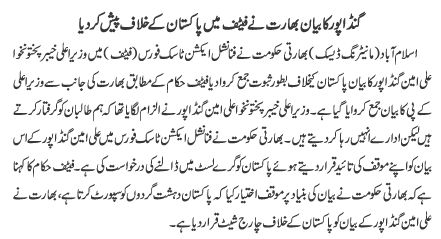 گنڈاپور کا بیان بھارت نے فیٹف میں پاکستان کے خلاف پیش کر دیا
اسلام آباد (مانیٹرنگ ڈیسک) بھارتی حکومت نے فنانشل ایکشن ٹاسک فورس (فیٹف) میں وزیراعلیٰ خیبر پختونخوا
علی امین گنڈاپور کا بیان پاکستان کیخلاف بطور ثبوت جمع کروا دیا فیٹف حکام کے مطابق بھارت کی جانب سے وزیراعلیٰ
کے پی کا بیان جمع کروایا گیا ہے۔ وزیراعلیٰ خیبر پختونخوا علی امین گنڈاپور نے الزام لگایا تھا کہ ہم طالبان کو گرفتار کرتے
ہیں لیکن ادارے انہیں رہا کر دیتے ہیں۔ بھارتی حکومت نے فنانشل ایکشن ٹاسک فورس میں علی امین گنڈاپور کے اس
بیان کو اپنے موقف کی تائید قرار دیتے ہوئے پاکستان کو گرے لسٹ میں ڈالنے کی درخواست کی ہے۔ فیٹف حکام کا کہنا
ہے کہ بھارتی حکومت نے بیان کی بنیاد پر موقف اختیار کیا کہ پاکستان دہشت گردوں کو سپورٹ کرتا ہے، بھارت نے
علی امین گنڈاپور کے بیان کو پاکستان کے خلاف چارج شیٹ قرار دیا ہے۔